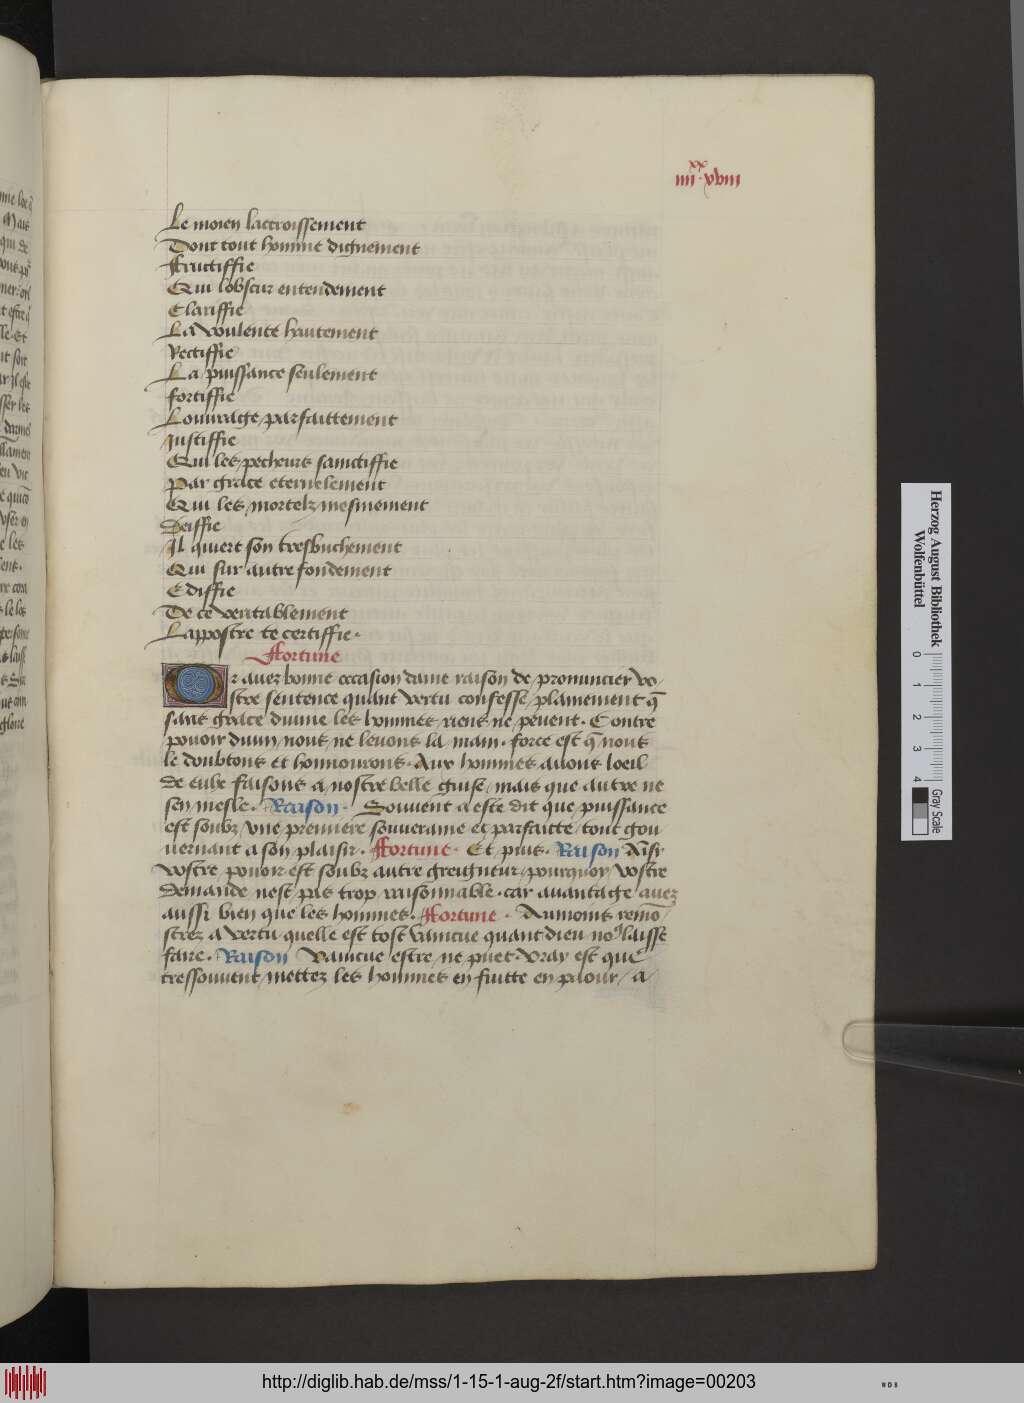 iiii xx xviii
Le moien laccroissement
Dont tout homme dignement
Fructiffie
Qui lobscur entendement
Clariffie
La voulente haultement
Rectiffie
La puissance seulement
fortiffie
Louurage parfaittement
Justiffie
Qui les pecheurs sainctiffie
Par grace eternelement
Qui les mortelz mesmement
Deiffie
Il quiert son tresbuchement
Qui sur autre fondement
Ediffie
De ce veritablement
Lappostre te certiffie.
Fortune
Or auez bonne occasion dame raison de pronuncier vo-
stre sentence quant vertu confesse plainement q̄
sans grace diuine les hommes riens ne peuent. Contre
pouoir diuin nous ne leuons la main. force est q̄ nous
le doubtons et honnourons. Aux hommes auons loeil
de eulx faisons a nostre belle guise mais que autre ne
sen mesle. Raison. Souuent a este dit que puissance
est soubz vne premiere souueraine et parfaitte tout gou
uernant a son plaisir. Fortune. Et puis. Raison Ainsi
vostre pouoir est soubz autre greigneur pourquoy vostre
demande nest pas trop raisonnable. car auantage auez
aussi bien que les hommes. Fortune. Aumoins remō
strez a vertu quelle est tost vaincue quant dieu no9 laisse
faire. Raison Vaincue estre ne puet. vray est que
tressouuent mettez les hommes en fuitte en paour / a
Herzog August Bibliothek
Wolfenbüttel
0 1 2 3 4
Gray Scale
http://diglib.hab.de/mss/1-15-1-aug-2f/start.htm?image=00203
WDB